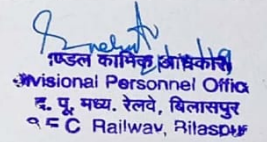 मण्डल कार्मिक अधिकारी
Divisional Personnel Office
द. पू. मध्य. रेलवे, बिलासपुर
C Railway, Bilaspur